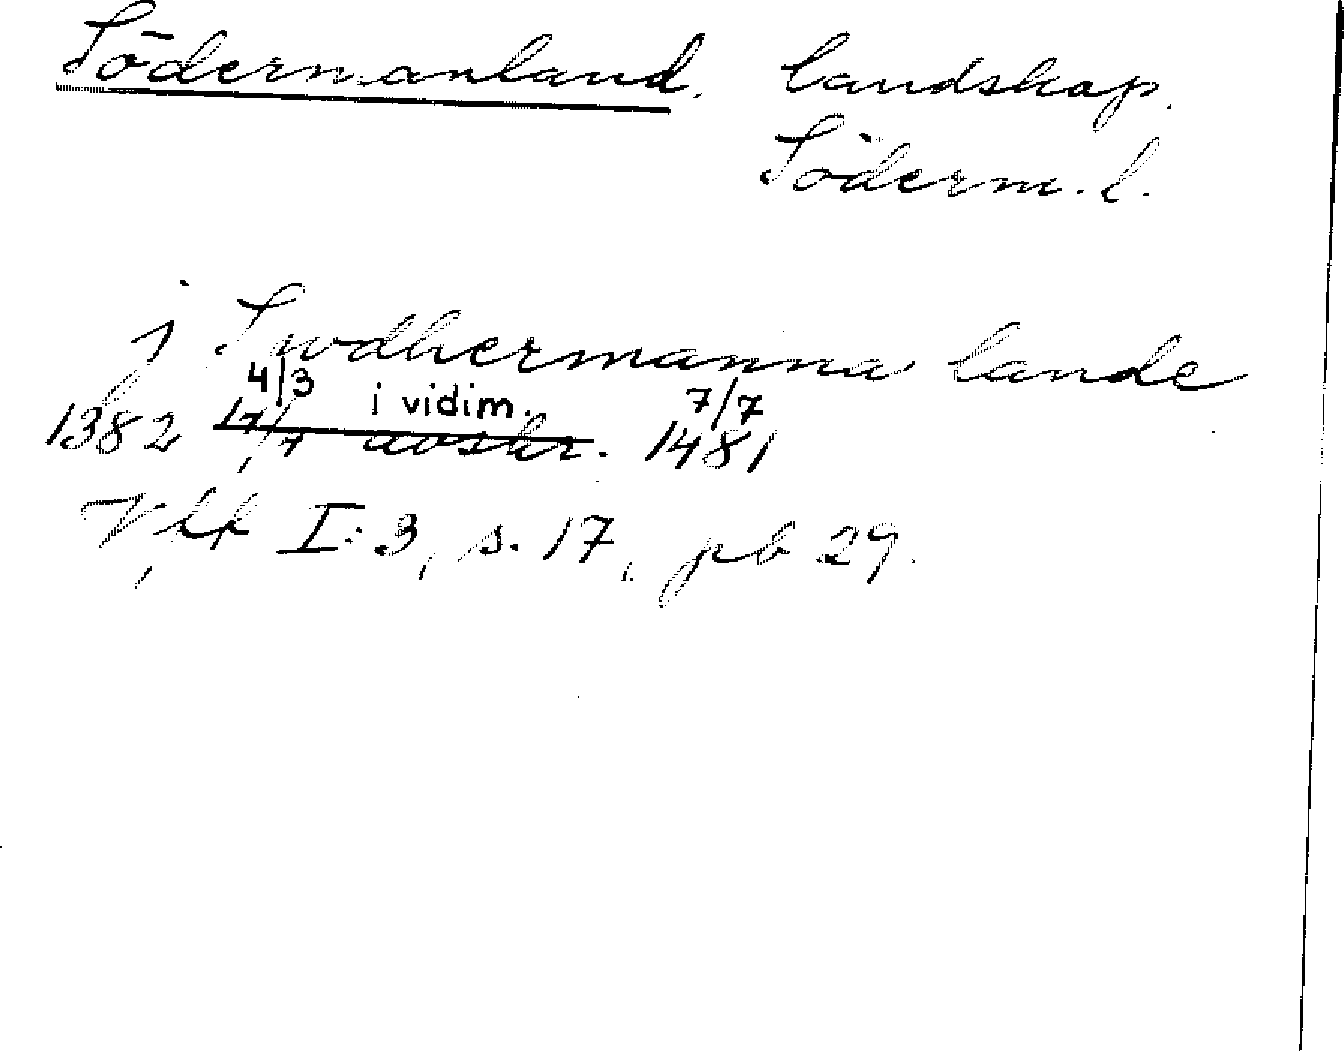 Södermanland. landskap.
Söderm. l.
j Swdhermanna lande
4/3 i vidim. 7/7
1382 17/7 avskr. 1481
I:3, s. 17, pb 29.